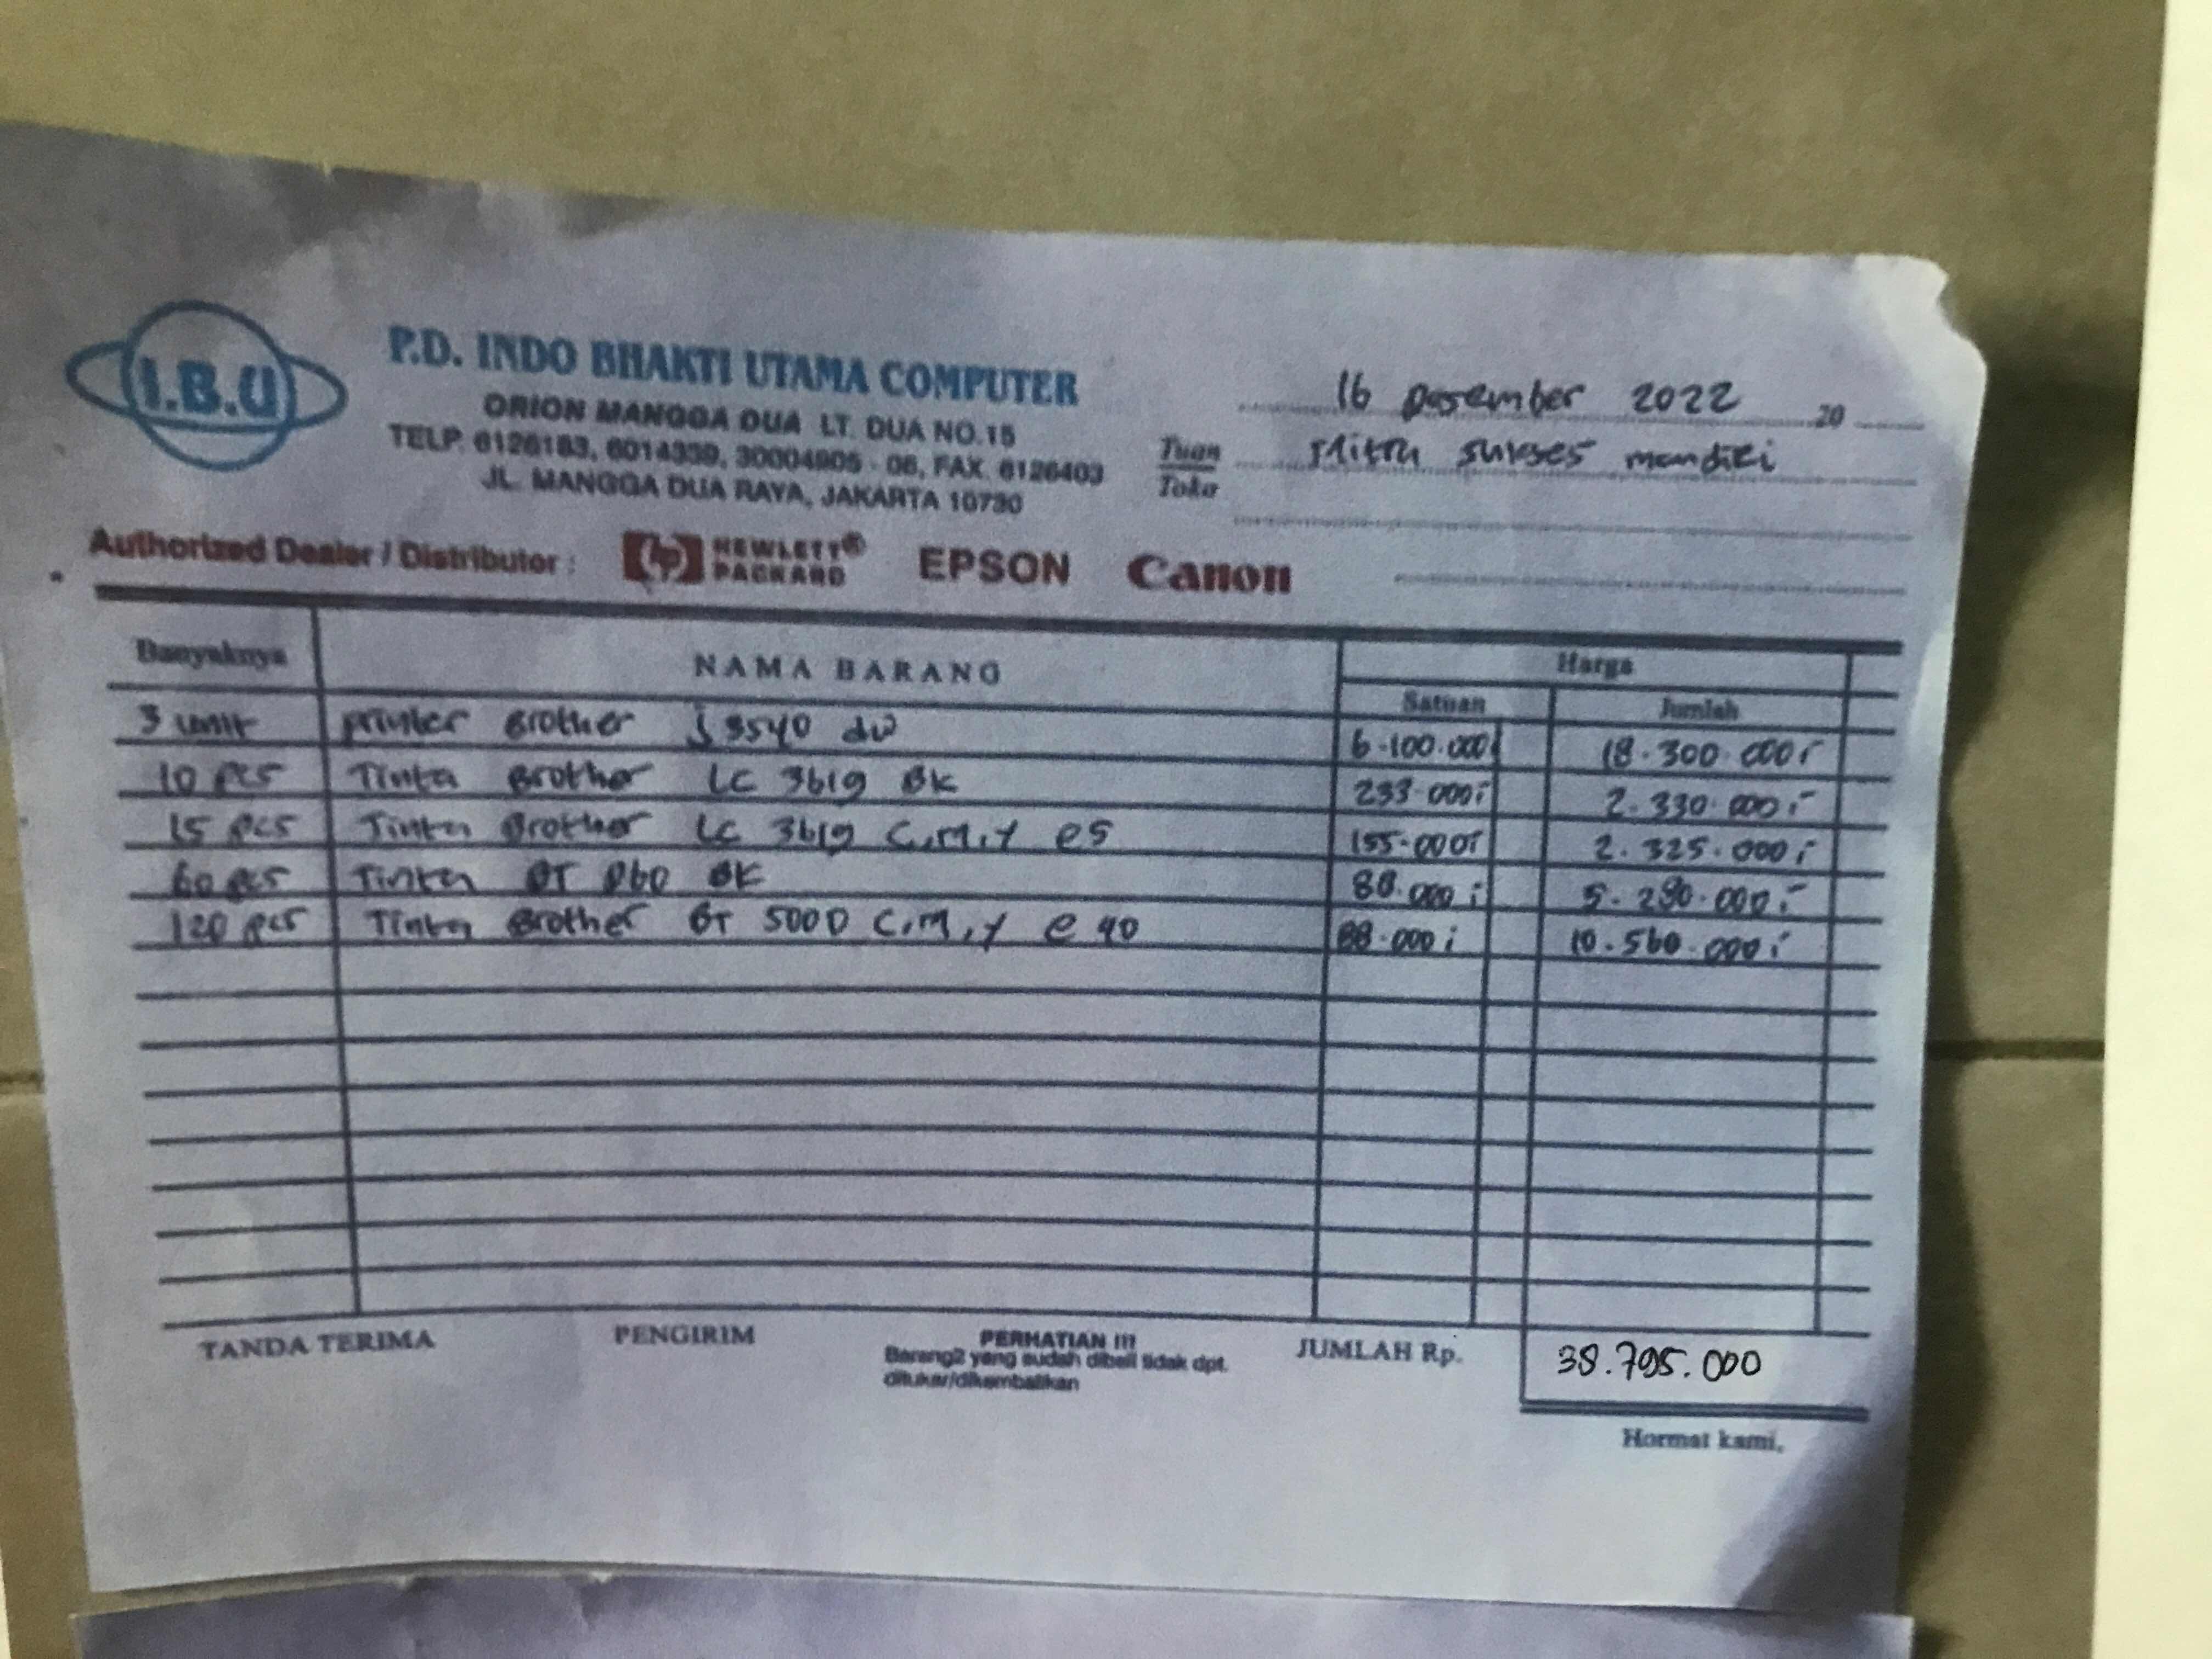 I.B.U
P.D. INDO BHAKTI UTAMA COMPUTER
ORION MANGGA DUA LT. DUA NO.15
TELP. 6126183, 6014339, 30004905 - 06, FAX. 6126403
JL. MANGGA DUA RAYA, JAKARTA 10730
16 Desember 2022 20
Tuan Mitra sukses mandiri
Toko
Authorized Dealer / Distributor : hp HEWLETT® PACKARD EPSON Canon
Banyaknya NAMA BARANG Harga
Satuan Jumlah
3 unit printer Brother J 3540 dw 6.100.000 18.300.000,-
10 pcs Tinta Brother LC 3619 BK 233.000,- 2.330.000,-
15 pcs Tinta Brother LC 3619 C,M,Y @5 155.000,- 2.325.000,-
60 pcs Tinta BT D60 BK 88.000,- 5.280.000,-
120 pcs Tinta Brother BT 5000 C,M,Y @ 40 88.000,- 10.560.000,-
TANDA TERIMA PENGIRIM PERHATIAN !!! JUMLAH Rp. 38.795.000
Barang2 yang sudah dibeli tidak dpt.
ditukar/dikembalikan
Hormat kami,